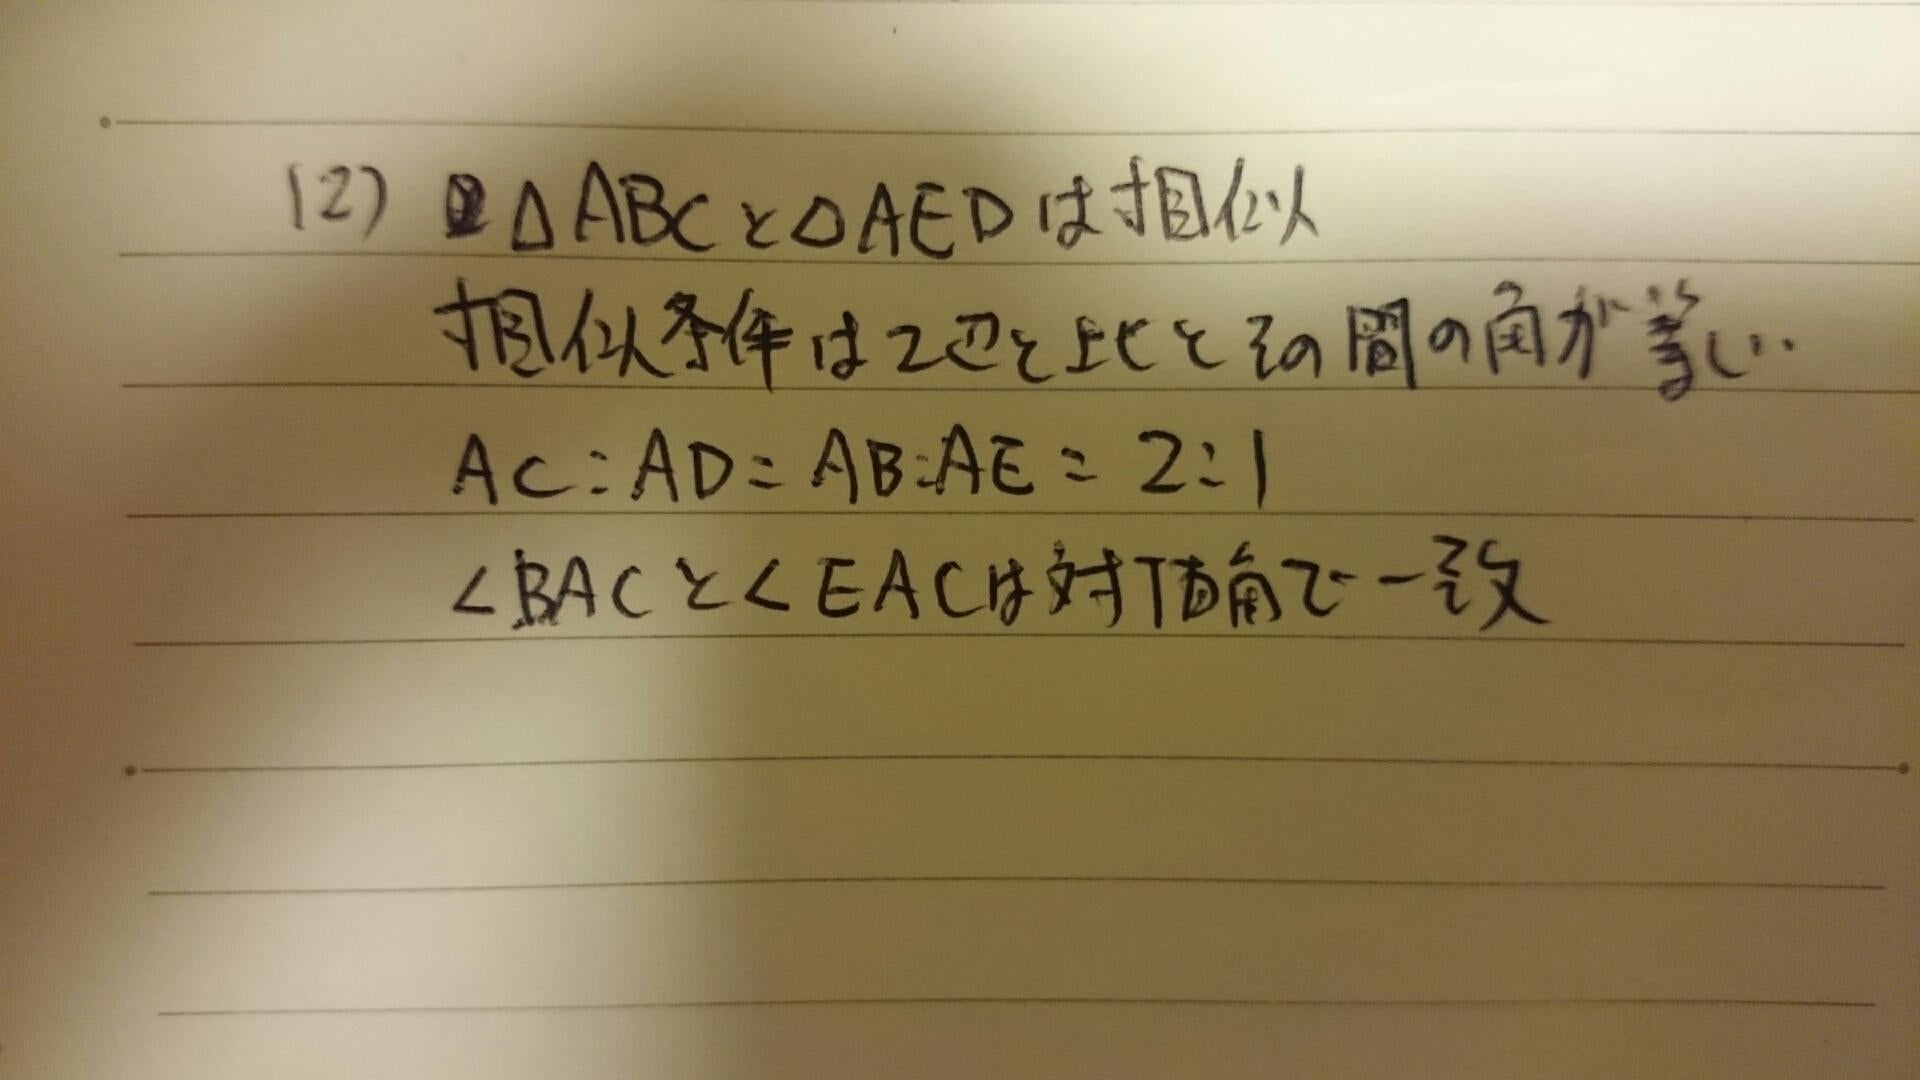 (2) △ABCと△AEDは相似
相似条件は2辺と比とその間の角が等しい.
AC:AD=AB:AE=2:1
<BACと<EACは対頂角で一致